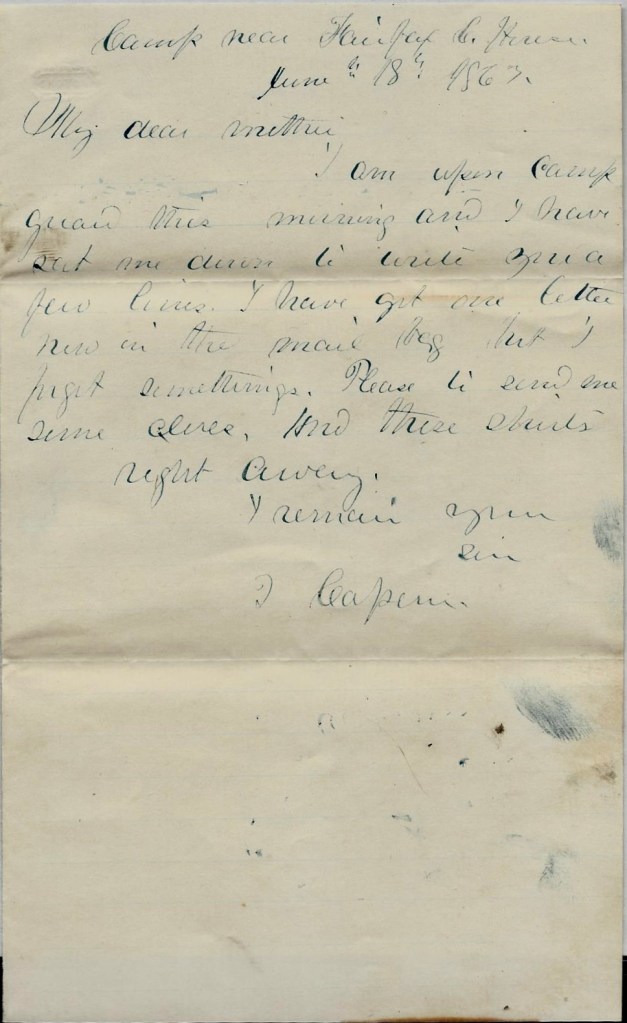 Camp near Fairfax C. House
June " 18 " 1863.
My dear mother
I am upon Camp
guard this morning and I have
set me down to write you a
few lines. I have got one letter
now in the mail bag but I
forgot somethings. Please to send me
some and those shirts
right away.
I remain your
son
J Capen.